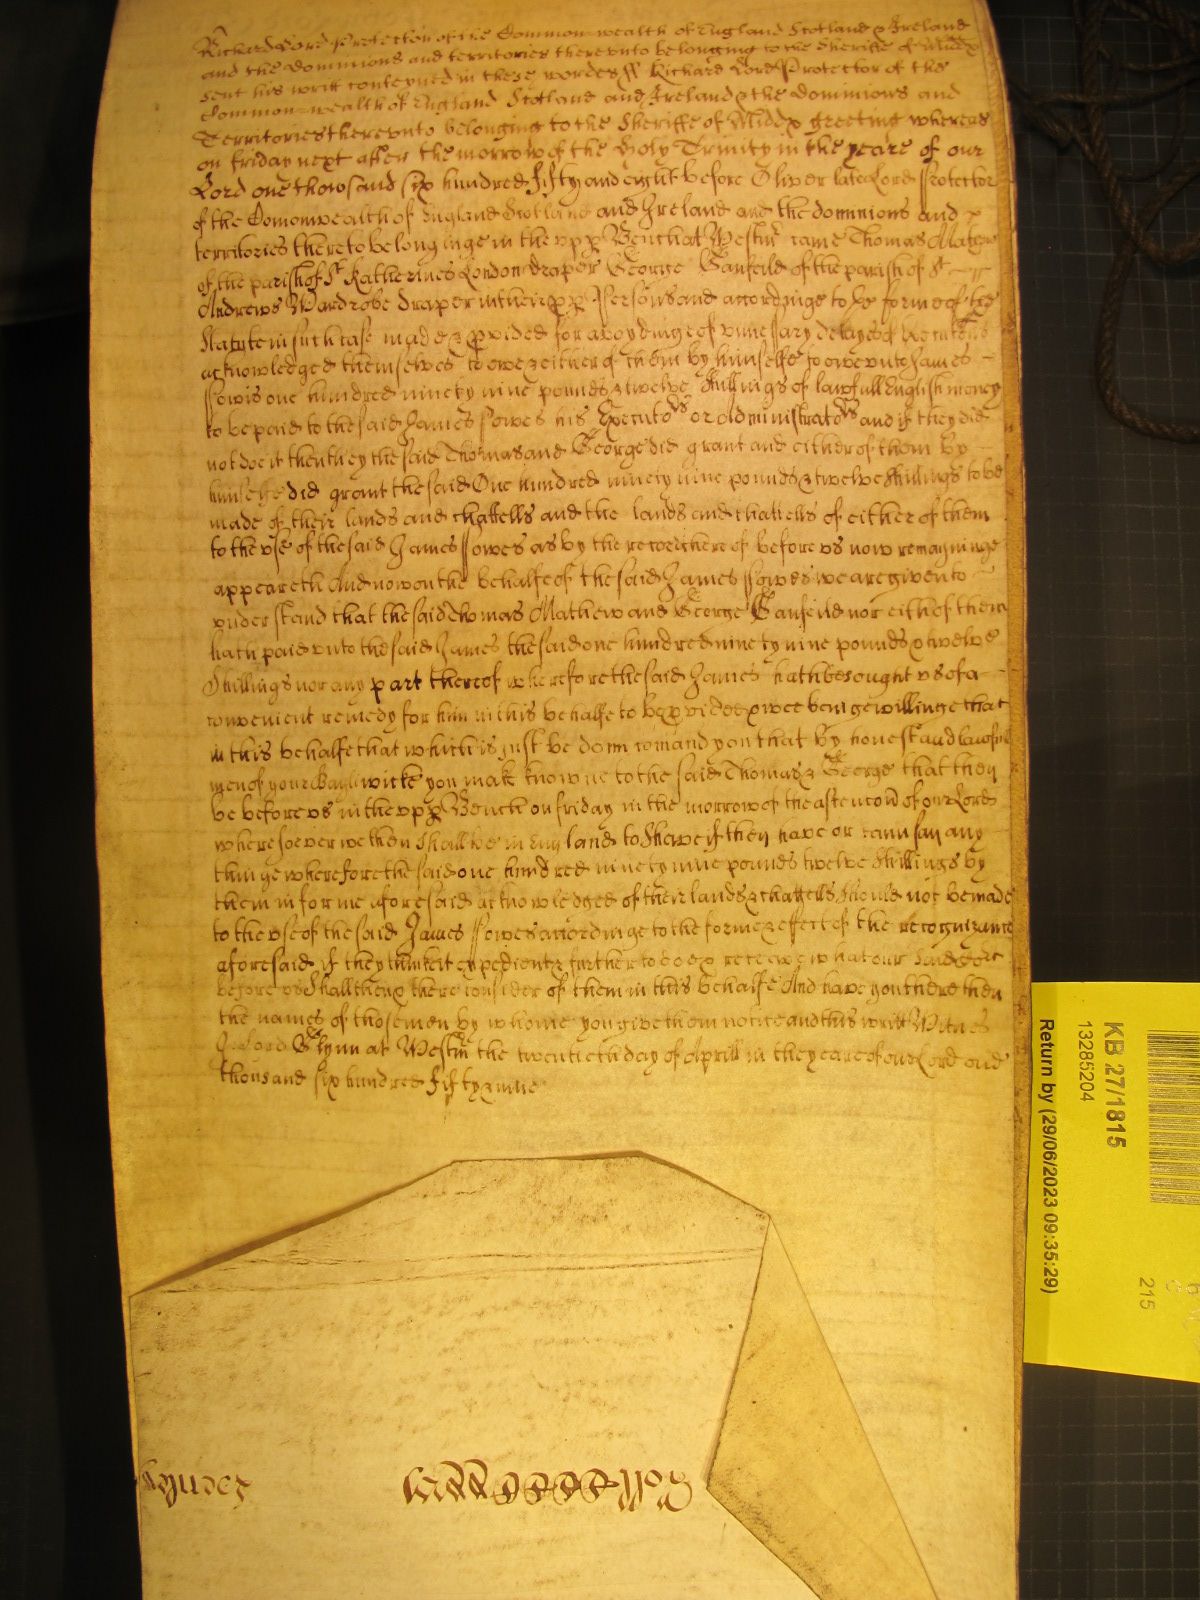 Richard Lord Protector of the Common wealth of England Scotland & Ireland
and the dominions and territories therevnto belonging to the Sheriffe of Midd
sent his writt conteyned in these wordes ss Richard Lord Protector of the
Common-wealth of England Scotland and Ireland & the dominions and
Territories therevnto belonging to the Sheriffe of Midd greeting whereas
on friday next after the morrow of the Holy Trinity in the yeare of our
Lord one thowsand six hundred fifty and eight before Oliver late Lord Protector
of the Comonwealth of England Scotland and Ireland and the dominions and
territories thereto belonginge in the vpp Bench at Westm came Thomas Mathew
of the parish of St Katherines London draper George Canfeild of the parish of St
Andrews Wardrobe draper in their pp Persons and accordinge to the forme of the
Statute in such case made & pvided for avoydinge of vnnessary delayes of
acknowledged themselves to owe & either of them by himselfe to owe vnto James
ffowis one hundred ninety nine pounds & twelve Shillings of lawfull English money
to be paid to the said James ffowes his Executors or Administrators and if they did
not doe it then they the said Thomas and George did grant and either of them by
himselfe did grant the said One hundred ninety nine pounds & twelve shillings to be
made of their lands and chattells and the lands and chattells of either of them
to the vse of the said James ffowes as by the record thereof before vs now remayninge
appeareth And now on the behalfe of the said James ffowes we are given to
vnderstand that the said Thomas Mathew and George Canfeild nor eith of them
hath paid vnto the said James the said one hundred ninety nine pounds & twelve
Shillings nor any part thereof wherefore the said James hath besought vs of a
convenient remedy for him in this behalfe to be pvided & wee being willinge that
in this behalfe that which is just be donn comand you that by honest and lawfull
men of your Bayliwicke you make knowne to the said Thomas & George that they
be before vs in the vpp Bench on friday in the morrow of the astencon of our Lord
wheresoever we then shall be in England to shewe if they have or cann say any
thinge wherefore the said one hundred ninety nine pounds twelve shillings by
them in forme aforesaid acknowledged of their lands & chattells should not be made
to the vse of the said James ffowes accordinge to the forme & effect of the recognizance
aforesaid if they thinke it expedient & further to doe & receive what our said Cort
before vs shall then & there consider of them in this behalfe And have you there then
the names of those men by whome you give them notice and this writt Witnes
Glynn at Westm the twentieth day of Aprill in the yeare of our Lord one
thousand six hundred fifty & nine
Roll
KB 27/1815
13285204
Return by (29/06/2023 09:35:29)
215